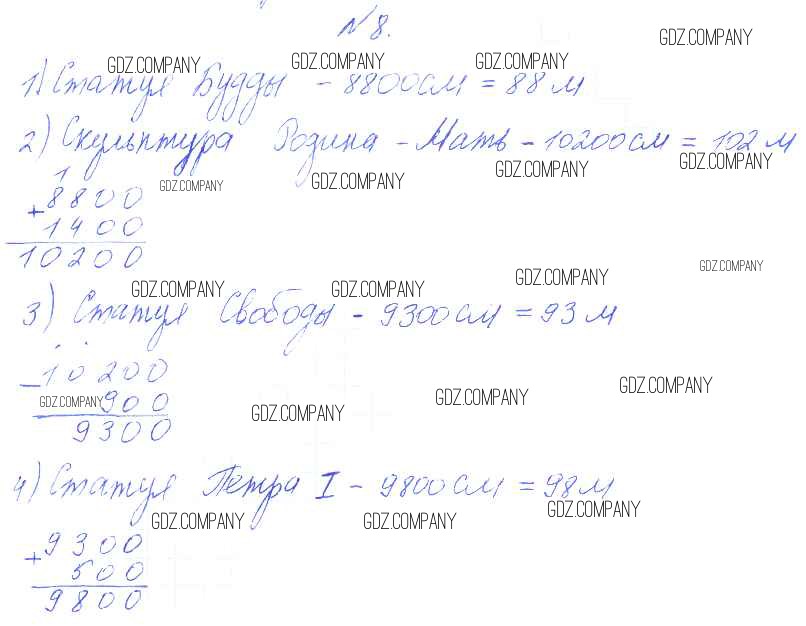 № 8.
GDZ.COMPANY GDZ.COMPANY GDZ.COMPANY GDZ.COMPANY
1) Статуя Будды - 8800 см = 88 м
2) Скульптура Родина - Мать - 10200 см = 102 м
GDZ.COMPANY GDZ.COMPANY GDZ.COMPANY GDZ.COMPANY
1
+ 8800
1400
10200
GDZ.COMPANY GDZ.COMPANY GDZ.COMPANY GDZ.COMPANY
3) Статуя Свободы - 9300 см = 93 м
- 10200
900
9300
GDZ.COMPANY GDZ.COMPANY GDZ.COMPANY GDZ.COMPANY
4) Статуя Петра I - 9800 см = 98 м
GDZ.COMPANY GDZ.COMPANY GDZ.COMPANY
+ 9300
500
9800